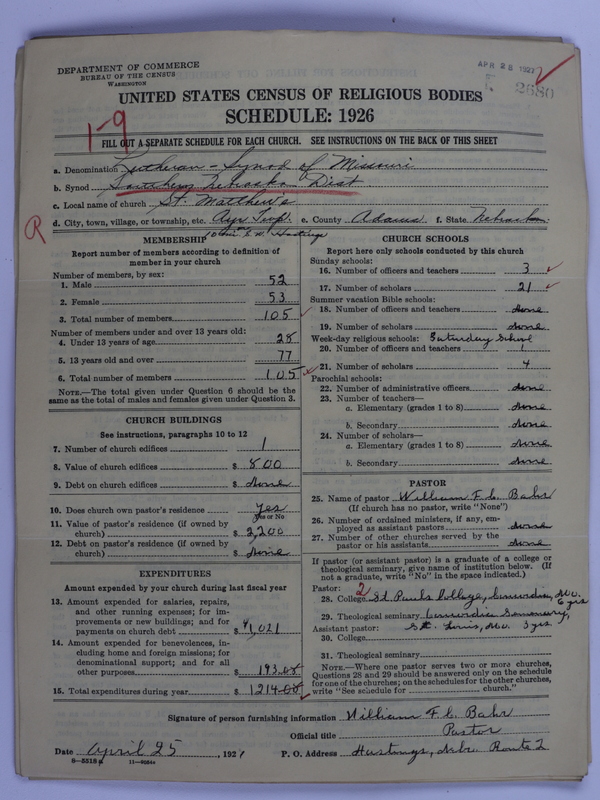 DEPARTMENT OF COMMERCE
BUREAU OF THE CENSUS
WASHINGTON
APR 28 1927
2680
UNITED STATES CENSUS OF RELIGIOUS BODIES
SCHEDULE: 1926
1-9
FILL OUT A SEPARATE SCHEDULE FOR EACH CHURCH. SEE INSTRUCTIONS ON THE BACK OF THIS SHEET
a. Denomination Lutheran - Synod of Missouri
b. Synod Southern Nebraska Dist.
c. Local name of church St. Matthew's
R
d. City, town, village, or township, etc. Ayr Twp. e. County Adams f. State Nebraska
MEMBERSHIP
Report number of members according to definition of
member in your church
Number of members, by sex:
1. Male 52
2. Female 53
3. Total number of members 105
Number of members under and over 13 years old:
4. Under 13 years of age 28
5. 13 years old and over 77
6. Total number of members 105
NOTE.—The total given under Question 6 should be the
same as the total of males and females given under Question 3.
CHURCH BUILDINGS
See instructions, paragraphs 10 to 12
7. Number of church edifices 1
8. Value of church edifices $ 800
9. Debt on church edifices $ None
10. Does church own pastor's residence Yes
Yes or No
11. Value of pastor's residence (if owned by
church) $ 2,200
12. Debt on pastor's residence (if owned by
church) $ None
EXPENDITURES
Amount expended by your church during last fiscal year
13. Amount expended for salaries, repairs,
and other running expenses; for im-
provements or new buildings; and for
payments on church debt $ 1,021
14. Amount expended for benevolences, in-
cluding home and foreign missions; for
denominational support; and for all
other purposes $ 193.08
15. Total expenditures during year $ 1214.08
CHURCH SCHOOLS
Report here only schools conducted by this church
Sunday schools:
16. Number of officers and teachers 3
17. Number of scholars 21
Summer vacation Bible schools:
18. Number of officers and teachers None
19. Number of scholars None
Week-day religious schools: Saturday School
20. Number of officers and teachers 1
21. Number of scholars 4
Parochial schools:
22. Number of administrative officers None
23. Number of teachers—
a. Elementary (grades 1 to 8) None
b. Secondary None
24. Number of scholars—
a. Elementary (grades 1 to 8) None
b. Secondary None
PASTOR
25. Name of pastor William F. C. Bahr
(If church has no pastor, write "None")
26. Number of ordained ministers, if any, em-
ployed as assistant pastors None
27. Number of other churches served by the
pastor or his assistants None
If pastor (or assistant pastor) is a graduate of a college or
theological seminary, give name of institution below. (If
not a graduate, write "No" in the space indicated.)
Pastor: 2
28. College St. Pauls College, Concordia, Mo. 6 yrs
29. Theological seminary Concordia Seminary,
Assistant pastor: St. Louis, Mo. 3 yrs
30. College
31. Theological seminary
NOTE.—Where one pastor serves two or more churches,
Questions 28 and 29 should be answered only on the schedule
for one of the churches; on the schedules for the other churches,
write "See schedule for church."
Signature of person furnishing information William F. C. Bahr
Official title Pastor
Date April 25, 1927 P. O. Address Hastings, Nebr. Route 2
8-5518a 11-9584